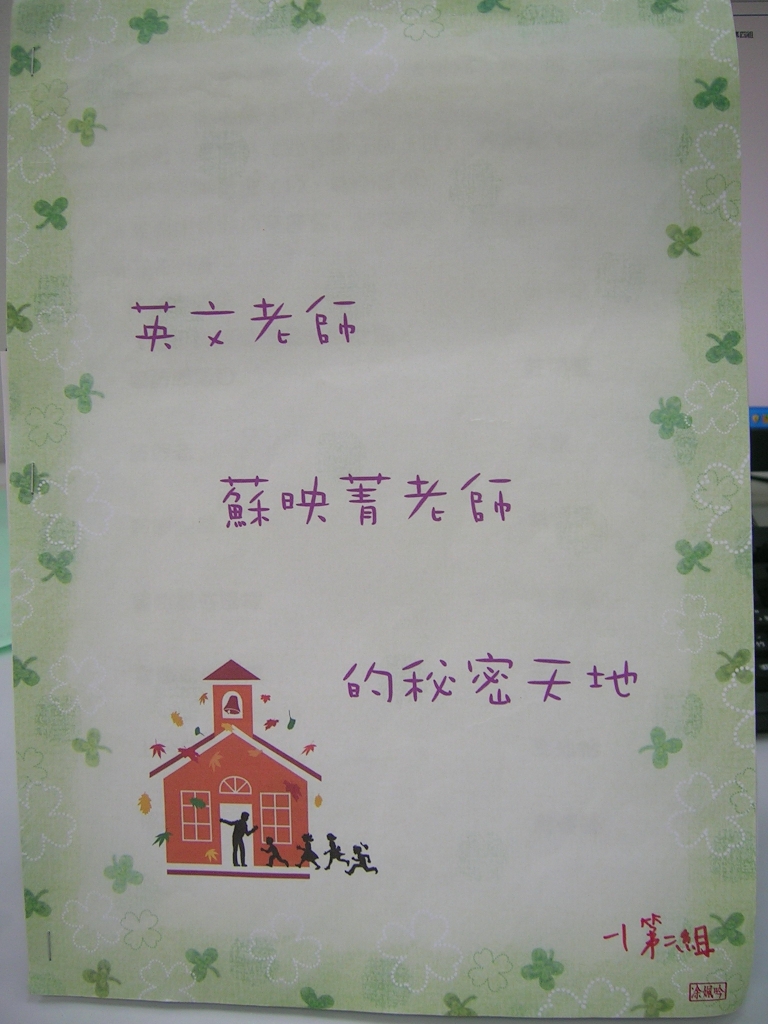 英文老師
蘇映菁老師
的秘密天地
第二組
涂姵吟